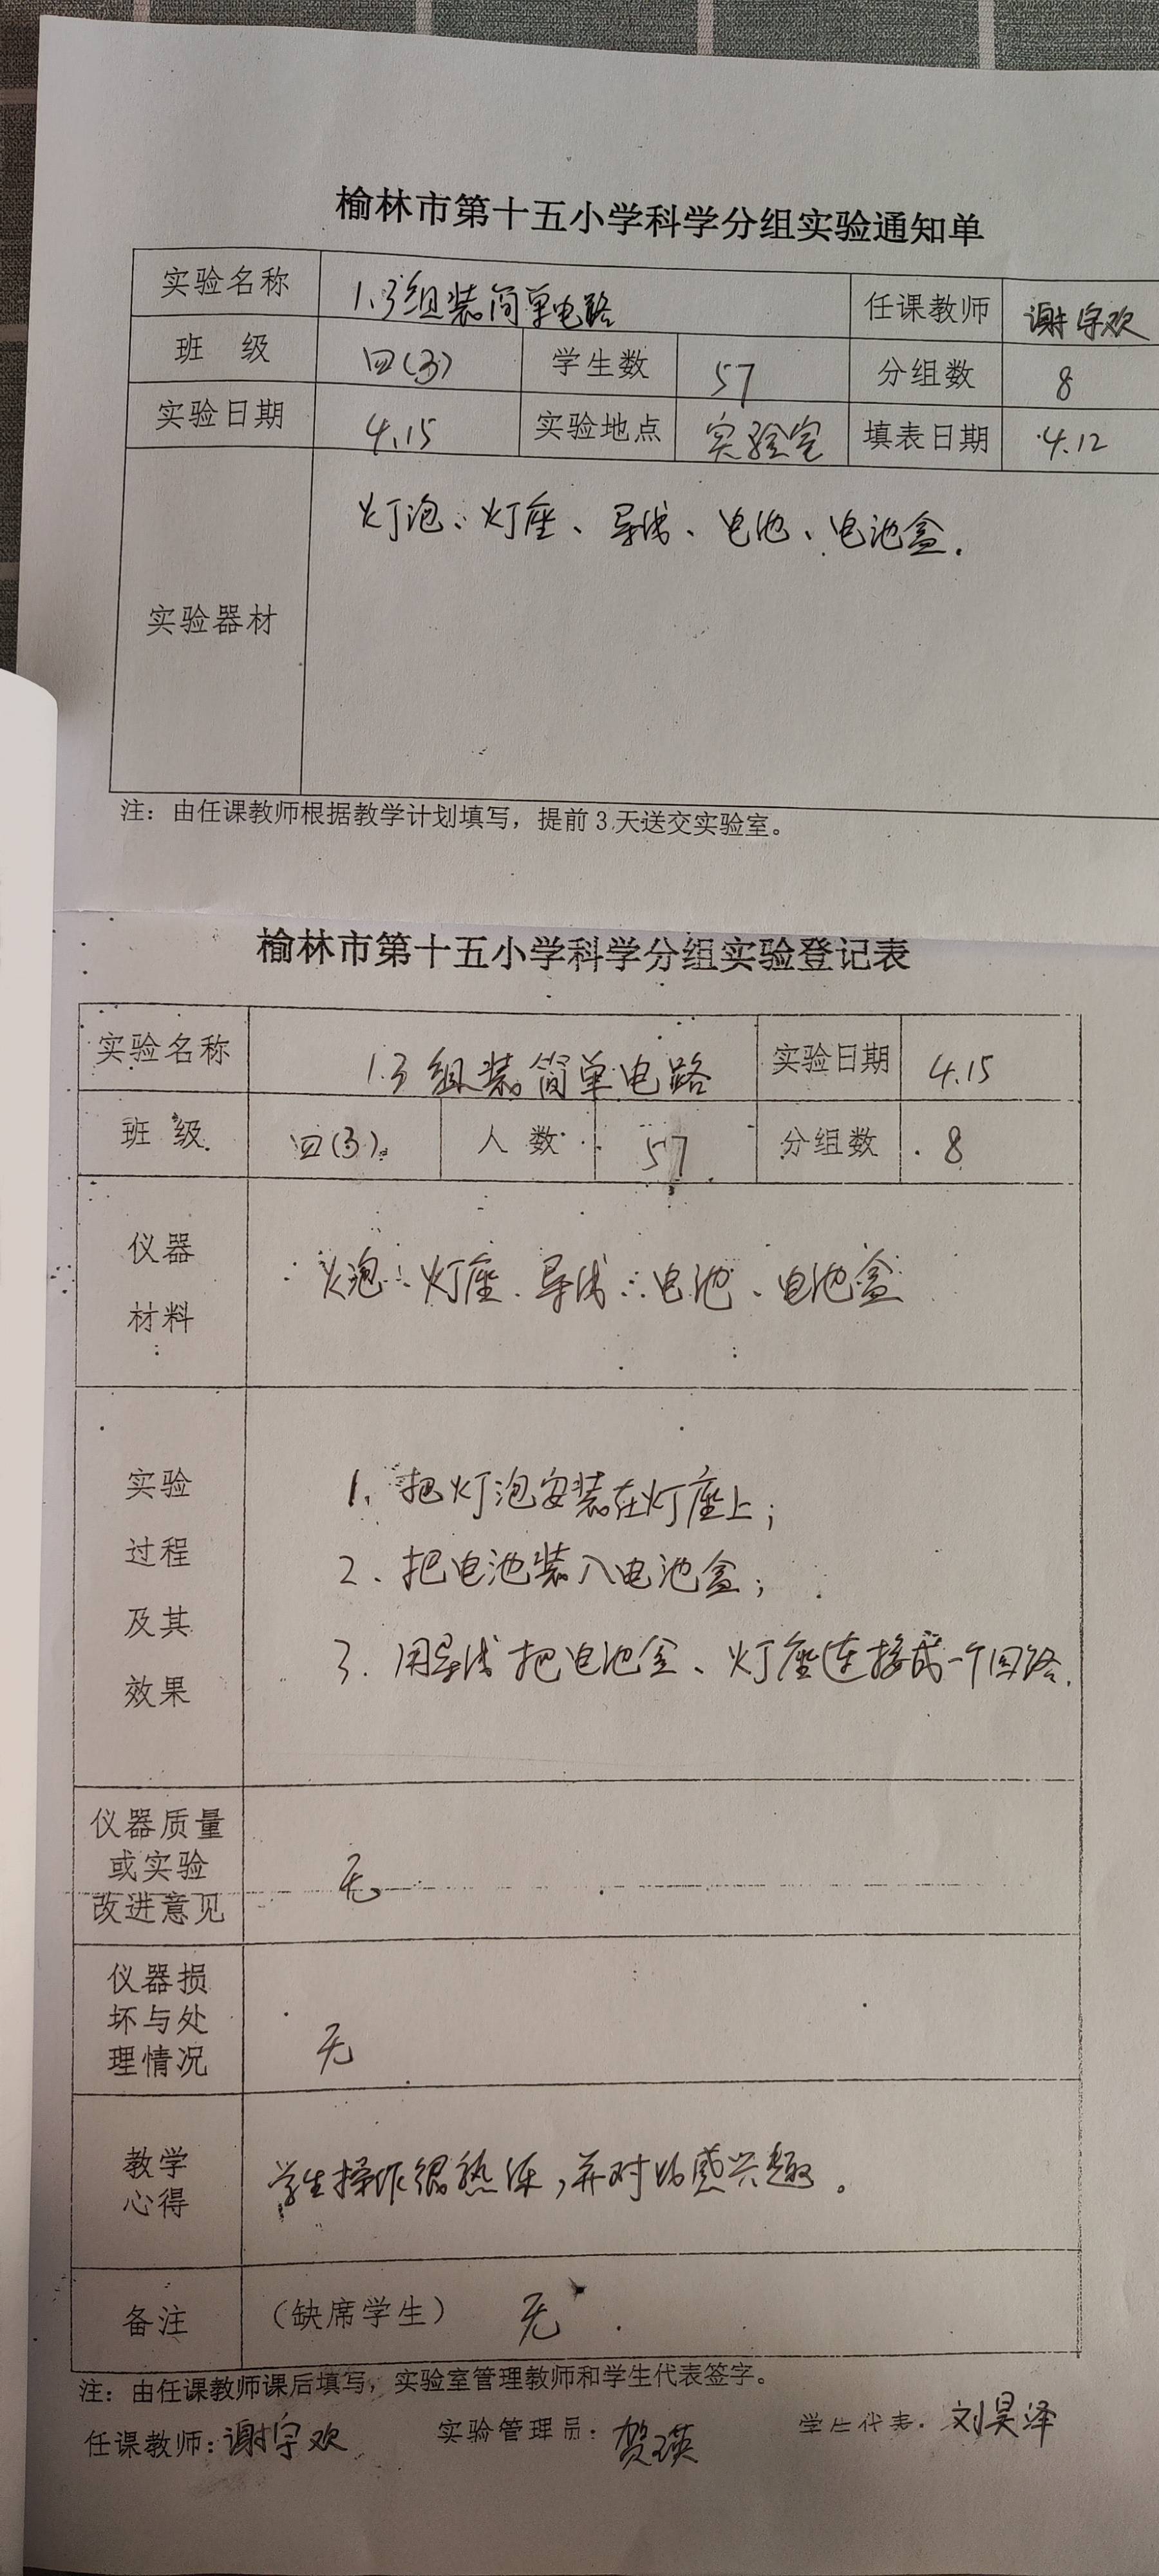 榆林市第十五小学科学分组实验通知单
实验名称 1.3组装简单电路 任课教师 谢宇欢
班 级 四(3) 学生数 57 分组数 8
实验日期 4.15 实验地点 实验室 填表日期 4.12
实验器材 灯泡、灯座、导线、电池、电池盒.
注：由任课教师根据教学计划填写，提前3天送交实验室。
榆林市第十五小学科学分组实验登记表
实验名称 1.3组装简单电路 实验日期 4.15
班 级 四(3) 人 数 57 分组数 8
仪器
材料
灯泡、灯座、导线、电池、电池盒
实验
过程
及其
效果
1、把灯泡安装在灯座上；
2、把电池装入电池盒；
3.用导线把电池盒、灯座连接成一个回路.
仪器质量
或实验
改进意见
无
仪器损
坏与处
理情况
无
教学
心得
学生操作很熟练，并对此感兴趣。
备注 （缺席学生） 无
注：由任课教师课后填写，实验室管理教师和学生代表签字。
任课教师：谢宇欢 实验管理员：贺瑛 学生代表：刘昊泽